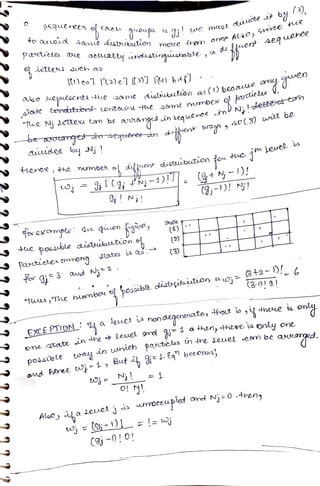 sequences of each groups is gj! we must divide it by
to avoid same distribution more than once Also, since the
particles are actually indistinguishable, a different sequence
of letters such as
also represents the same distribution as (1) because any given
state contains the same number of particles
The Nj letters can be arranged in sequence in Nj!
different ways, so (3) will be
divided by Nj!
Hence, the number of different distribution for the jth level is
wj = gj [(gj + Nj - 1)!] / gj! Nj! = (gj + Nj - 1)! / (gj - 1)! Nj!
For example: In given figure,
the possible distribution of
Particles among states is as →
for gj = 3 and Nj = 2.
State
(1)
(2)
(3)
Thus, The number of possible distribution wj = (3+2-1)! / (3-1)! 2! = 6
EXCEPTION: If a level is nondegenerate, that is, if there is only
one state in the level and gj = 1 then, there is only one
possible way in which particles in the level can be arranged.
and hence wj = 1, But if gj = 1. Eqn becomes,
wj = Nj! / 0! Nj! = 1
Also, if a level j is unoccupied and Nj = 0, then,
wj = (gj - 1)! / (gj - 1)! 0! = 1 = wj